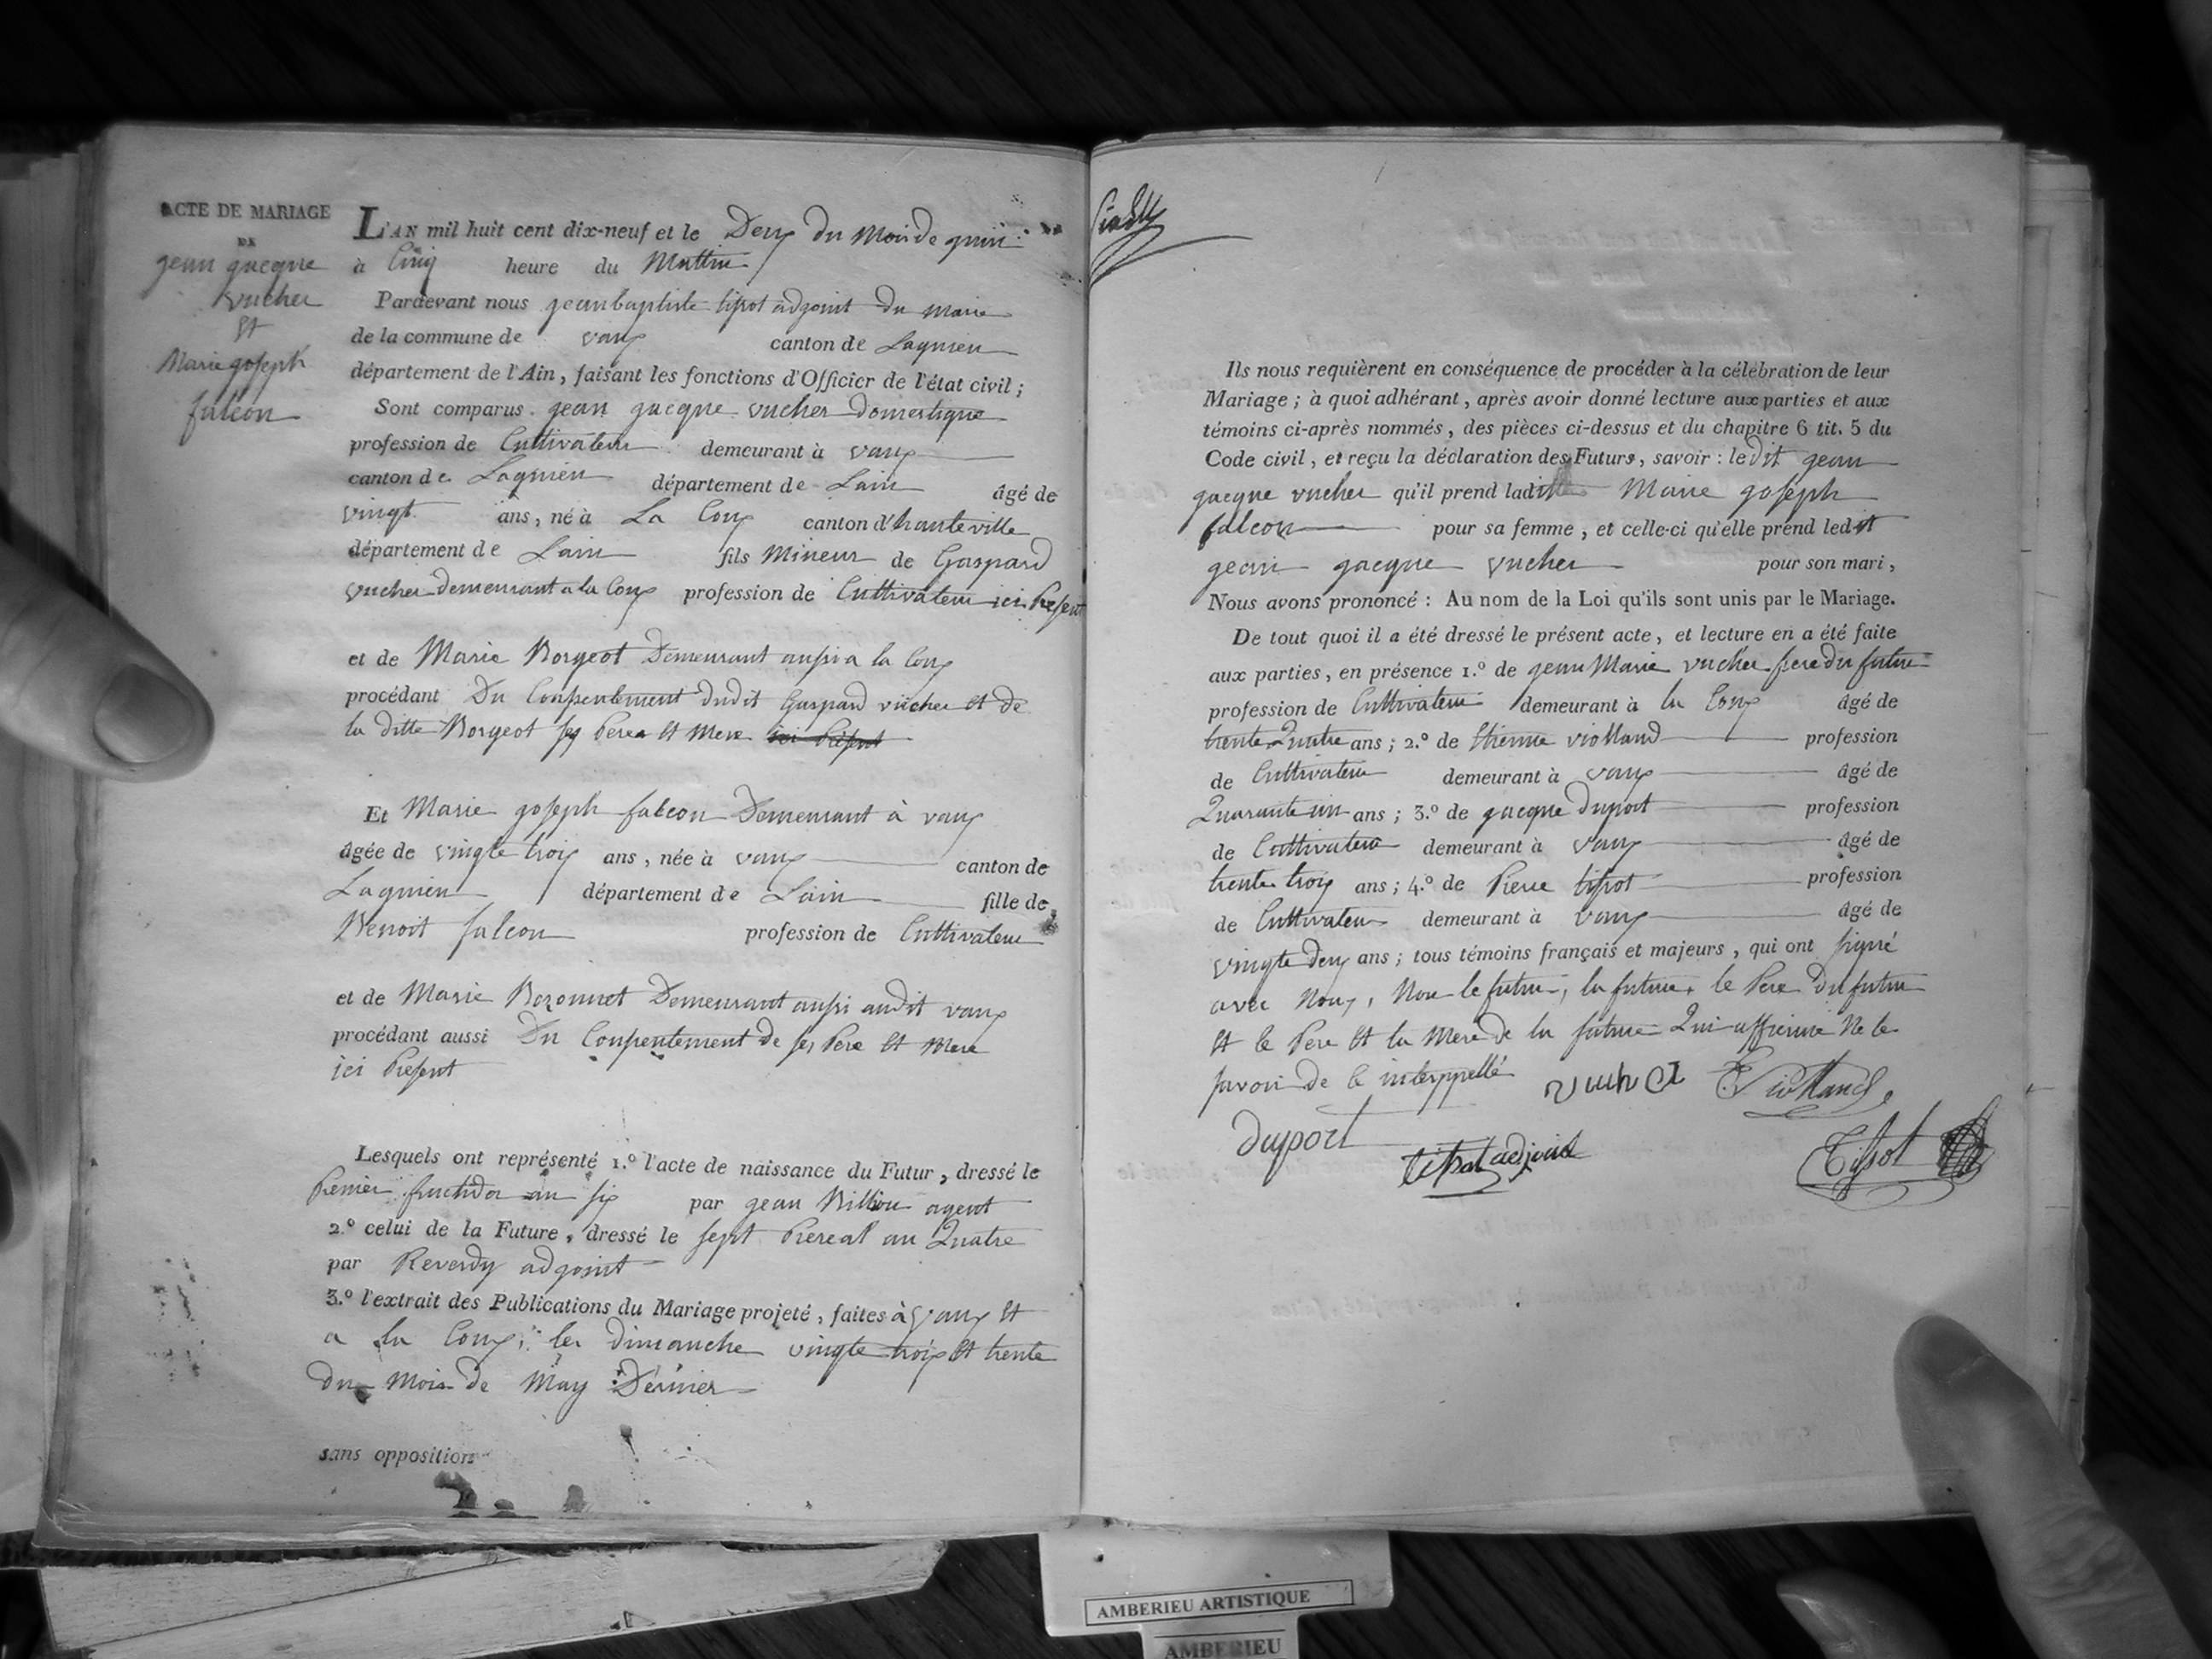 ACTE DE MARIAGE
DE
jean jacque
vucher
Et
Marie joseph
falcon
L'AN mil huit cent dix-neuf et le Deux du Mois de juin
à Cinq heure du Mattin
Pardevant nous jean baptiste tisot adjoint du maire
de la commune de vaux canton de Lagnieu
département de l'Ain, faisant les fonctions d'Officier de l'état civil ;
Sont comparus jean jacque vucher domestique
profession de Cultivateur demeurant à vaux
canton de Lagnieu département de Lain âgé de
vingt ans, né à La Coux canton d'hauteville
département de Lain fils Mineur de Gaspard
vucher demeurant a la Coux profession de Cultivateur ici Present
et de Marie Borgeot Demeurant aussi a la Coux
procédant Du Consentement dudit Gaspard vucher et de
la ditte Borgeot ses Peres et Mere ici Présent
Et Marie joseph falcon Demeurant à vaux
âgée de vingte trois ans, née à vaux canton de
Lagnieu département de Lain fille de
Benoit falcon profession de Cultivateur
et de Marie Bozonnet Demeurant aussi audit vaux
procédant aussi Du Consentement de ses Pere et Mere
ici Present
Lesquels ont représenté 1.º l'acte de naissance du Futur, dressé le
Premier fructidor an six par jean Billion agent
2.º celui de la Future, dressé le sept Prereal an Quatre
par Reverdy adjoint
3.º l'extrait des Publications du Mariage projeté, faites à vaux et
a la Coux, les dimanche vingte trois et trente
du Mois de May Dernier
sans opposition
Ils nous requièrent en conséquence de procéder à la célébration de leur
Mariage ; à quoi adhérant, après avoir donné lecture aux parties et aux
témoins ci-après nommés, des pièces ci-dessus et du chapitre 6 tit. 5 du
Code civil, et reçu la déclaration des Futurs, savoir : ledit jean
jacque vucher qu'il prend laditte Marie joseph
falcon pour sa femme, et celle-ci qu'elle prend ledit
jean jacque vucher pour son mari,
Nous avons prononcé : Au nom de la Loi qu'ils sont unis par le Mariage.
De tout quoi il a été dressé le présent acte, et lecture en a été faite
aux parties, en présence 1.º de jean Marie vucher frere du futur
profession de Cultivateur demeurant à la Coux âgé de
trente Quatre ans ; 2.º de Etienne violland profession
de Cultivateur demeurant à vaux âgé de
Quarante un ans ; 3.º de jacque duport profession
de Cultivateur demeurant à vaux âgé de
trente trois ans ; 4.º de Pierre tissot profession
de Cultivateur demeurant à vaux âgé de
vingte deux ans ; tous témoins français et majeurs, qui ont signé
avec Nous, Non le futur, la future, le Pere du futur
et le Pere et la Mere de la future Qui affirmé Ne le
savoir de ce interppellé vucher E violland
duport
titsot adjoint
Tissot
AMBERIEU ARTISTIQUE
AMBERIEU